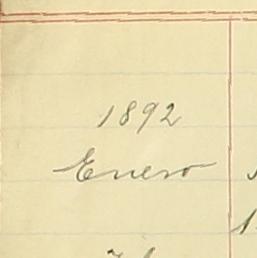 1892
Enero